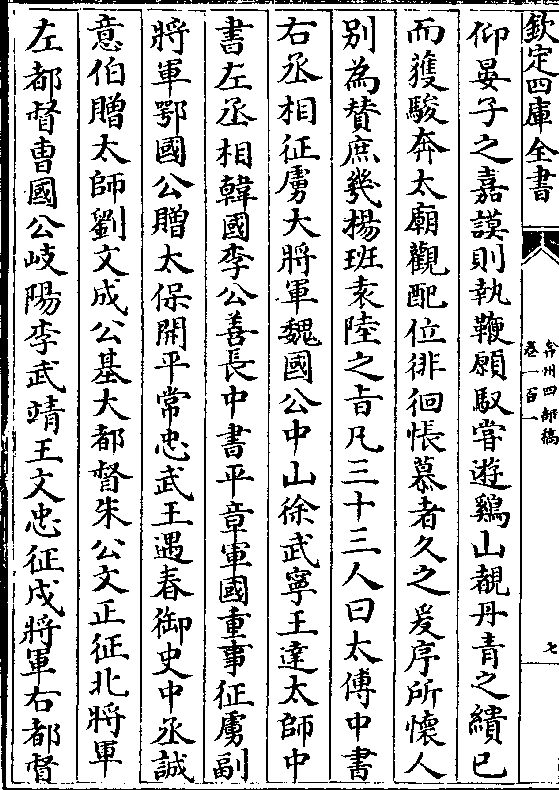 欽定四庫全書
弇州四部稿
卷一百一
七
仰晏子之嘉謨則執鞭願馭嘗遊鷄山覩丹青之繢已
而䕶駿奔太廟觀配位徘徊悵慕者久之爰序所懷人
别為賛庶幾楊班袁陸之㫖凡三十三人曰太傅中書
右丞相征虜大將軍魏國公中山徐武寧王達太師中
書左丞相韓國李公善長中書平章軍國重事征虜副
將軍鄂國公贈太保開平常忠武王遇春御史中丞誠
意伯贈太師劉文成公基大都督朱公文正征北將軍
左都督曹國公岐陽李武靖王文忠征戍將軍右都督